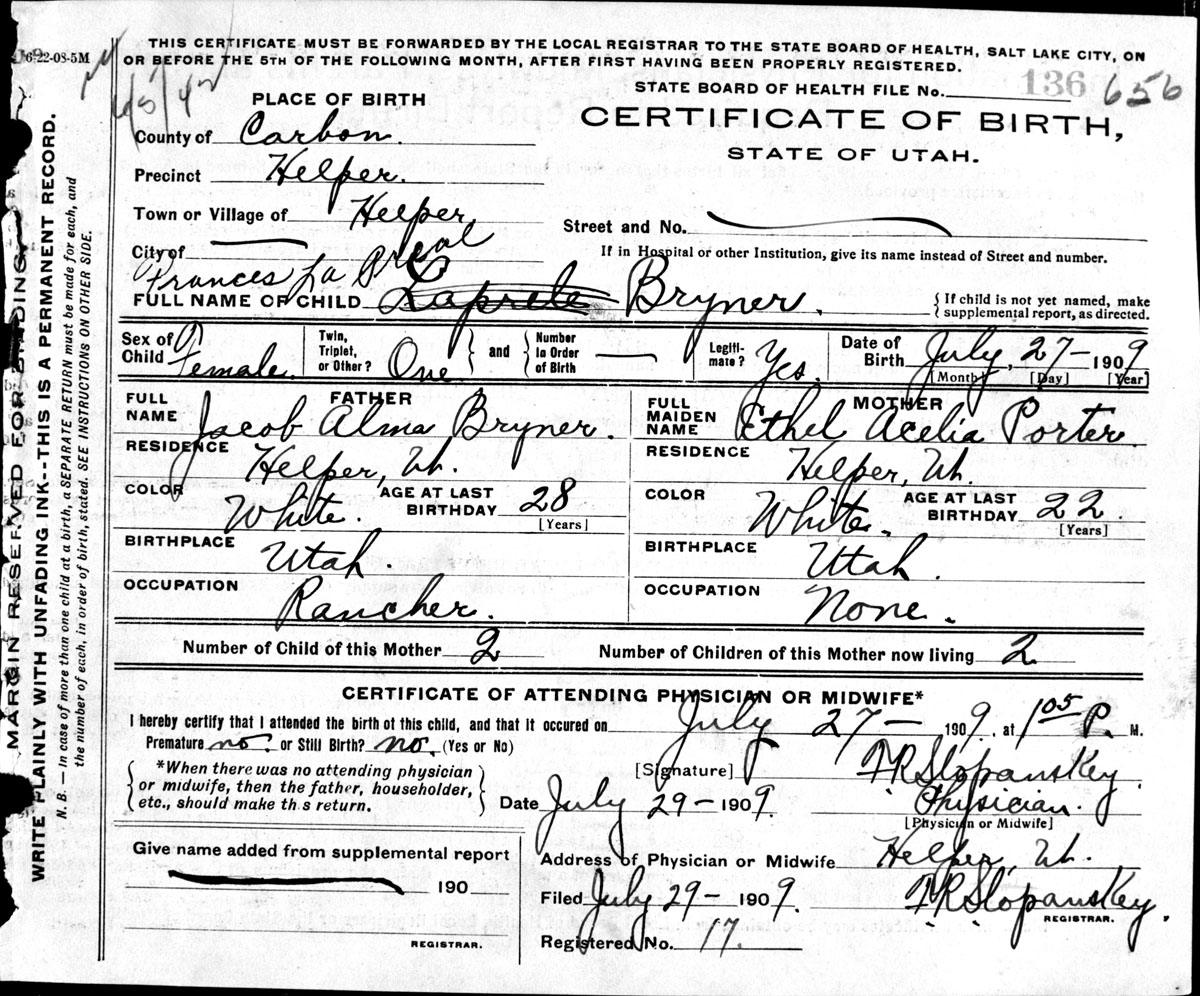 6-22-08-5M
THIS CERTIFICATE MUST BE FORWARDED BY THE LOCAL REGISTRAR TO THE STATE BOARD OF HEALTH, SALT LAKE CITY, ON
OR BEFORE THE 5TH OF THE FOLLOWING MONTH, AFTER FIRST HAVING BEEN PROPERLY REGISTERED.
STATE BOARD OF HEALTH FILE No. 136 656
CERTIFICATE OF BIRTH,
STATE OF UTAH.
PLACE OF BIRTH
County of Carbon.
Precinct Helper.
Town or Village of Helper,
City of
Street and No.
If in Hospital or other Institution, give its name instead of Street and number.
Frances La Preal
FULL NAME OF CHILD Laprele Bryner.
{ If child is not yet named, make
supplemental report, as directed.
Sex of Child Female.
Twin, Triplet, or Other? One
and
Number in Order of Birth
Legiti- mate? Yes.
Date of Birth July, 27- 1909
[Month] [Day] [Year]
FATHER
FULL NAME Jacob Alma Bryner.
RESIDENCE Helper, Ut.
COLOR White.
AGE AT LAST BIRTHDAY 28
[Years]
BIRTHPLACE Utah.
OCCUPATION Rancher.
MOTHER
FULL MAIDEN NAME Ethel Acelia Porter.
RESIDENCE Helper, Ut.
COLOR White.
AGE AT LAST BIRTHDAY 22
[Years]
BIRTHPLACE Utah.
OCCUPATION None.
Number of Child of this Mother 2
Number of Children of this Mother now living 2
CERTIFICATE OF ATTENDING PHYSICIAN OR MIDWIFE*
I hereby certify that I attended the birth of this child, and that it occured on July 27- 1909. at 1 05 P. M.
Premature no. or Still Birth? no. (Yes or No)
*When there was no attending physician
or midwife, then the father, householder,
etc., should make this return.
[Signature] F R Slopanskey
Physician.
[Physician or Midwife]
Date July 29- 1909.
Give name added from supplemental report
190
REGISTRAR.
Address of Physician or Midwife Helper, Ut.
Filed July 29- 1909.
F R Slopanskey.
REGISTRAR.
Registered No. 17.
MARGIN RESERVED FOR BINDING.
WRITE PLAINLY WITH UNFADING INK--THIS IS A PERMANENT RECORD.
N. B. — In case of more than one child at a birth, a SEPARATE RETURN must be made for each, and
the number of each, in order of birth, stated. SEE INSTRUCTIONS ON OTHER SIDE.